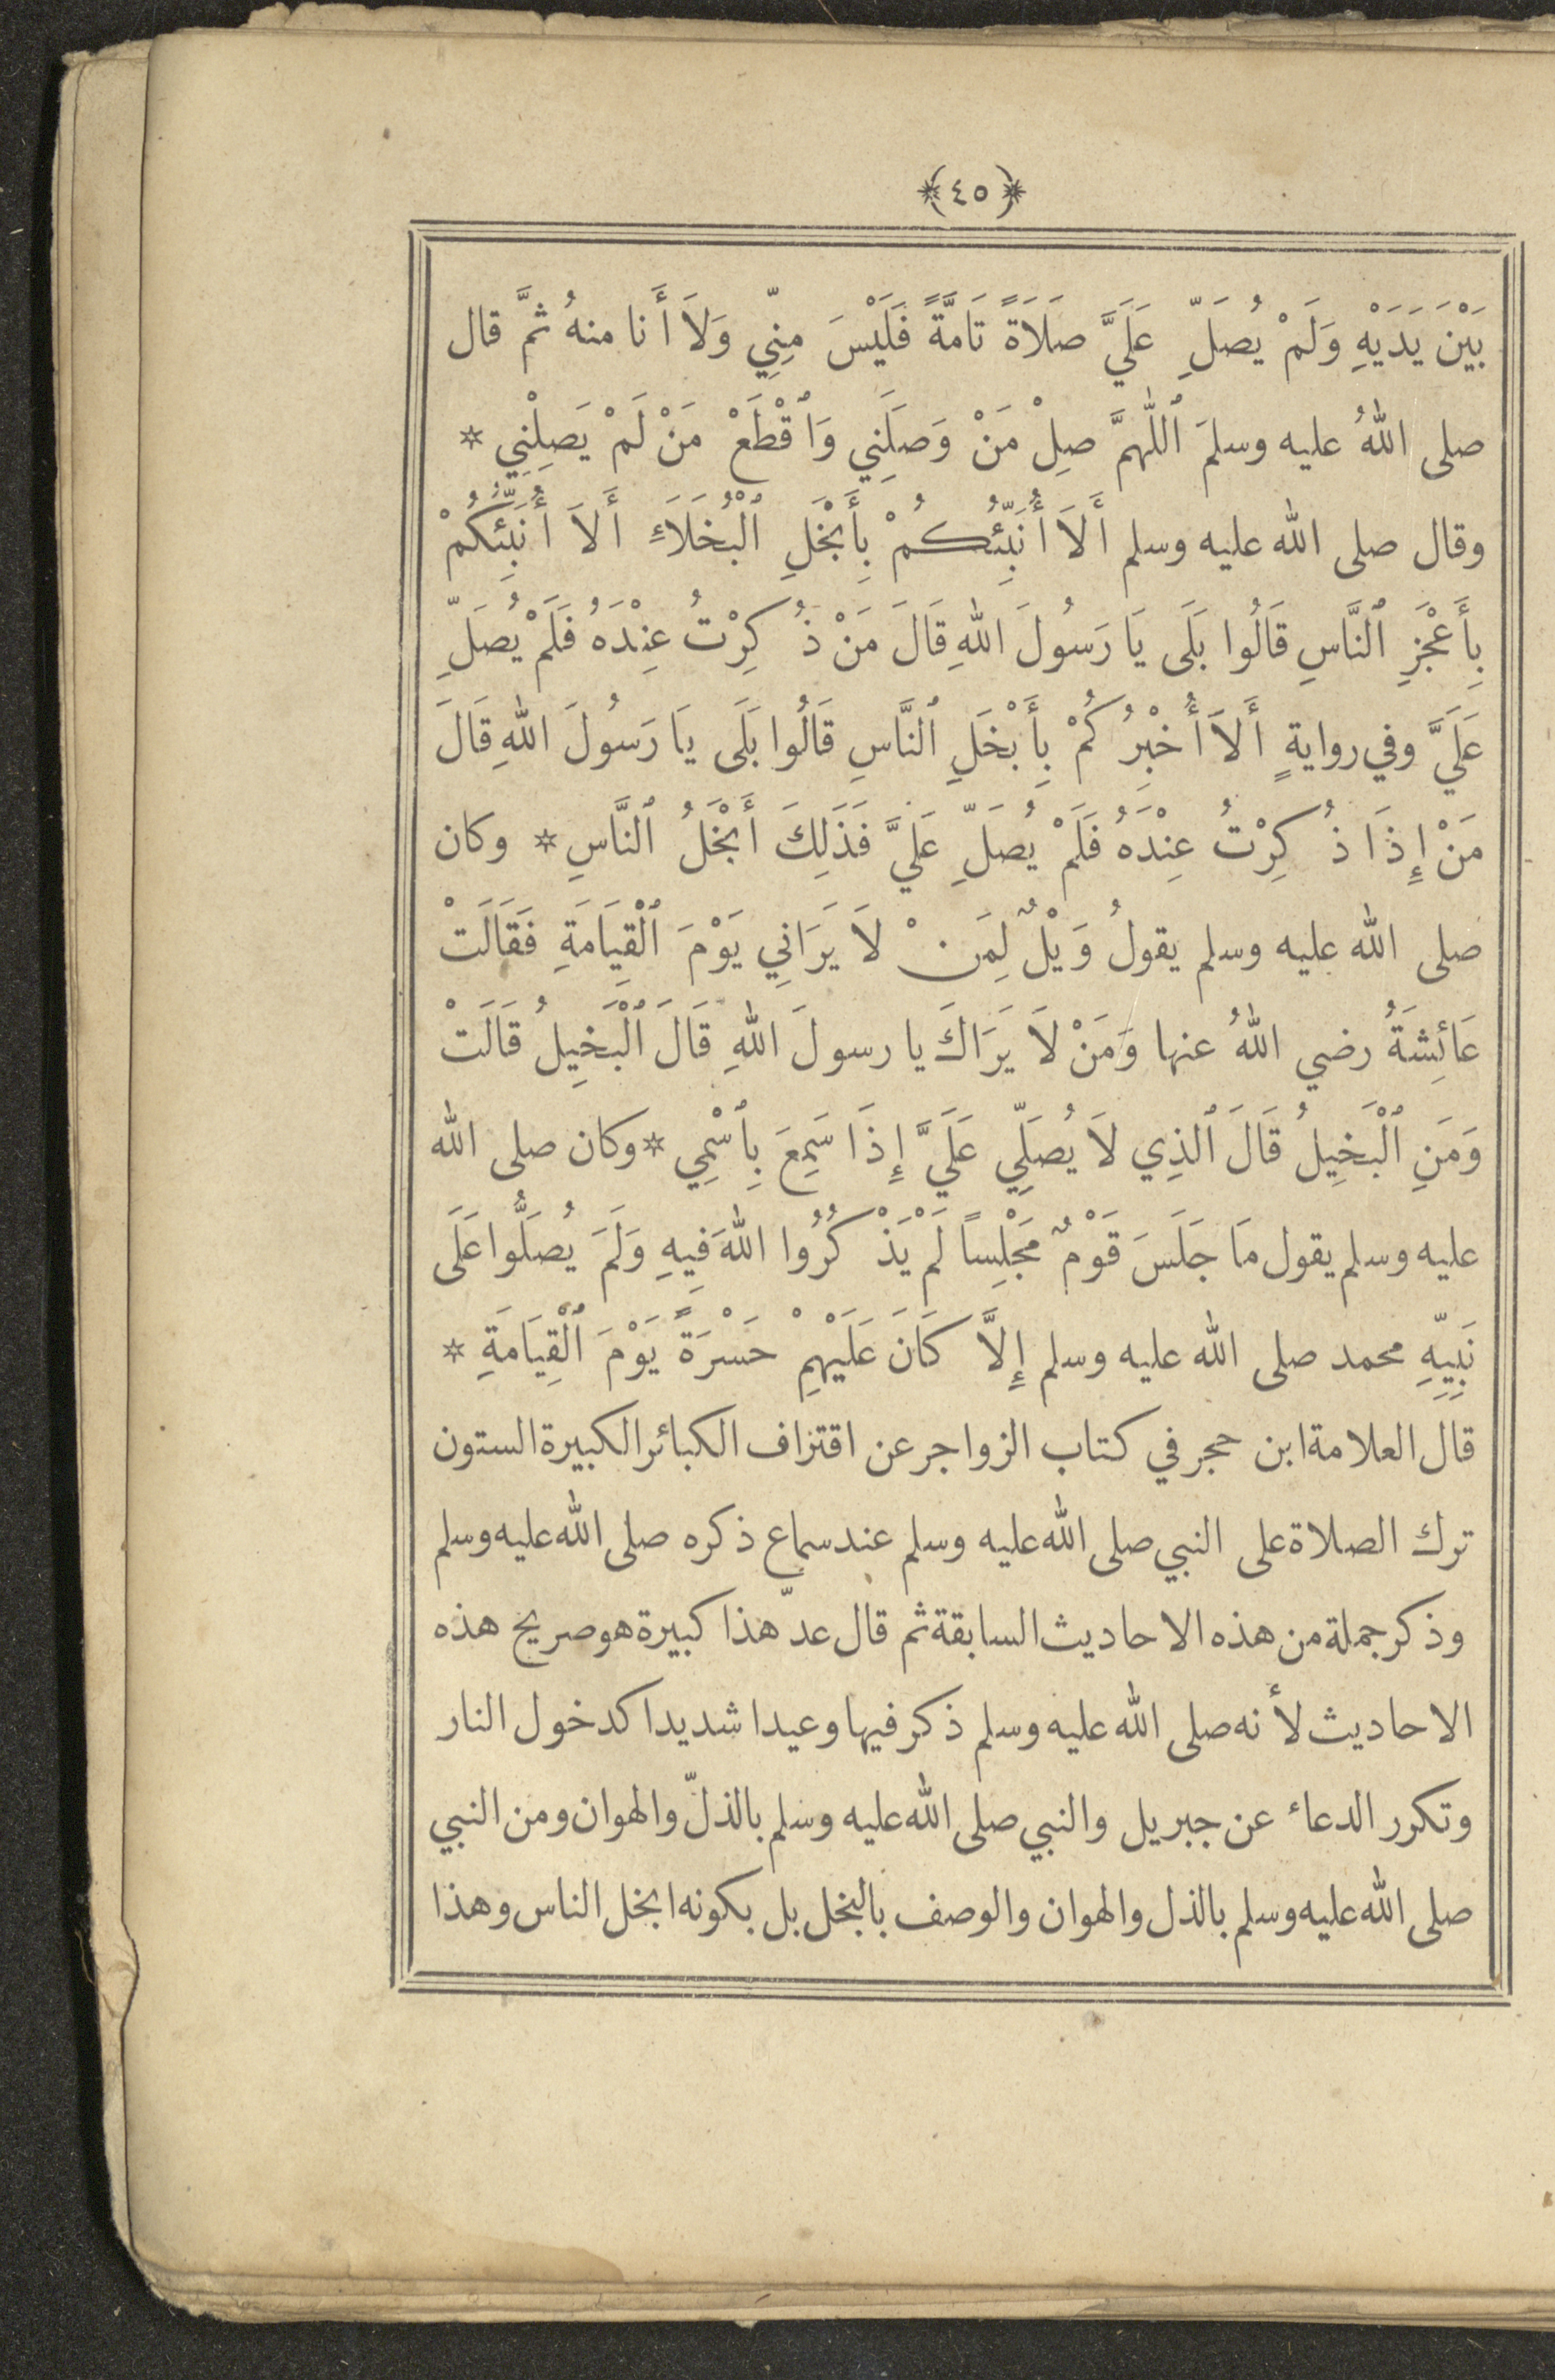 ﴿٤٥﴾
بَيْنَ يَدَيْهِ وَلَمْ يُصَلِّ عَلَيَّ صَلَاَةً تَامَّةً فَلَيْسَ مِنِّي وَلاَ أَنا منهُ ثمَّ قال
صلى اللهُ عليه وسلمَ ٱللّٰهمَّ صِلْ مَنْ وَصَلَنِي وَٱقْطَعْ مَنْ لَمْ يَصِلْنِي *
وقال صلى الله عليه وسلم أَلاَ أُنَبِّئُكُمْ بِأَبْخَلِ ٱلْبُخَلَاَءِ أَلاَ أُنَبِّئُكُمْ
بِأَعْجَزِ ٱلنَّاسِ قَالُوا بَلَى يَا رَسُولَ اللهِ قَالَ مَنْ ذُكِرْتُ عِنْدَهُ فَلَمْ يُصَلِّ
عَلَيَّ وفي روايةٍ أَلاَ أُخْبِرُكُمْ بِأَبْخَلِ ٱلنَّاسِ قَالُوا بَلَى يَا رَسُولَ اللهِ قَالَ
مَنْ إِذَا ذُكِرْتُ عِنْدَهُ فَلَمْ يُصَلِّ عَلَيَّ فَذَلِكَ أَبْخَلُ ٱلنَّاسِ * وكان
صلى الله عليه وسلم يقولُ وَيْلٌ لِمَنْ لاَ يَرَانِي يَوْمَ ٱلْقِيَامَةِ فَقَالَتْ
عَائِشَةُ رضي اللهُ عنها وَمَنْ لاَ يَرَاكَ يا رسولَ اللهِ قَالَ ٱلْبَخِيلُ قَالَتْ
وَمَنِ ٱلْبَخِيلُ قَالَ ٱلَّذِي لاَ يُصَلِّي عَلَيَّ إِذَا سَمِعَ بِٱسْمِي * وكان صلى الله
عليه وسلم يقول مَا جَلَسَ قَوْمٌ مَجْلِساً لَمْ يَذْكُرُوا اللهَ فِيهِ وَلَمَ يُصَلُّوا عَلَى
نَبِيِّهِ محمد صلى الله عليه وسلم إِلَّا كَانَ عَلَيْهِمْ حَسْرَةً يَوْمَ ٱلْقِيَامَةِ *
قال العلامة ابن حجر في كتاب الزواجر عن اقتراف الكبائر الكبيرة الستون
ترك الصلاة على النبي صلى الله عليه وسلم عند سماع ذكره صلى الله عليه وسلم
وذكر جملة من هذه الاحاديث السابقة ثم قال عدّ هذا كبيرة هو صريح هذه
الاحاديث لأنه صلى الله عليه وسلم ذكر فيها وعيدا شديدا كدخول النار
وتكرر الدعاء عن جبريل والنبي صلى الله عليه وسلم بالذلّ والهوان ومن النبي
صلى الله عليه وسلم بالذل والهوان والوصف بالبخل بل بكونه ابخل الناس وهذا